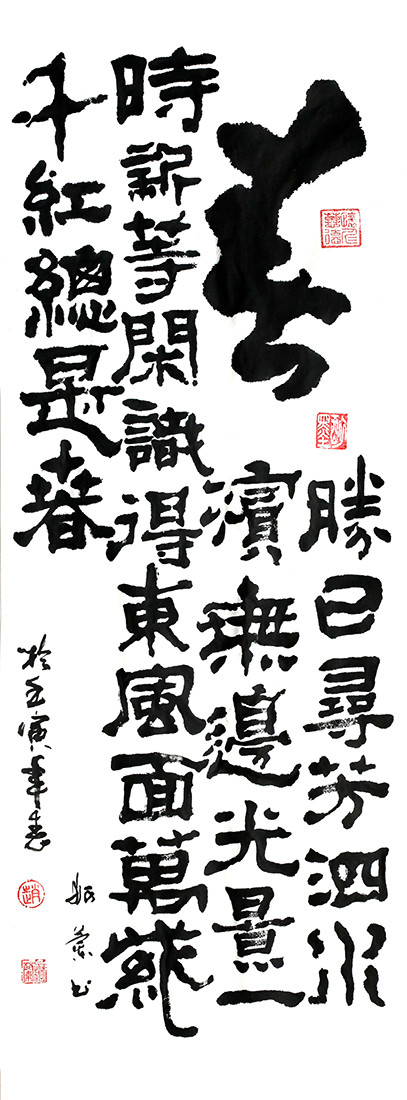 春
勝日尋芳泗水
濱無邊光景一
時新等閑識得東風面萬紫
千紅總是春
於壬寅年春
蘭书
趙